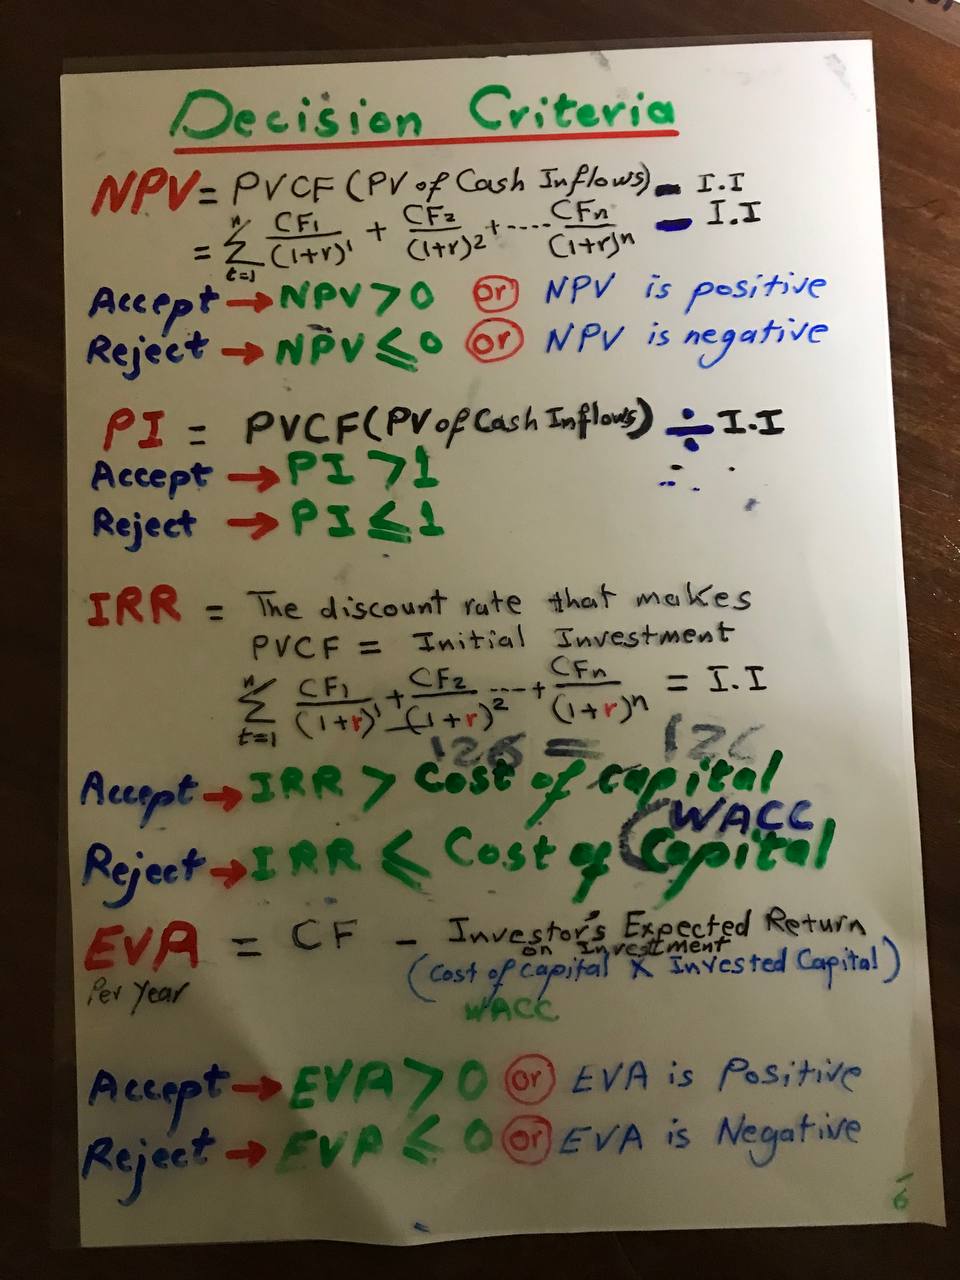 Decision Criteria
NPV = PVCF (PV of Cash Inflows) - I.I
= n ∑ t=1 CF1/(1+r)^1 + CF2/(1+r)^2 + .... CFn/(1+r)^n - I.I
Accept → NPV > 0 or NPV is positive
Reject → NPV ≤ 0 or NPV is negative
PI = PVCF (PV of Cash Inflows) ÷ I.I
Accept → PI > 1
Reject → PI ≤ 1
IRR = The discount rate that makes
PVCF = Initial Investment
n ∑ t=1 CF1/(1+r)^1 + CF2/(1+r)^2 ....+ CFn/(1+r)^n = I.I
Accept → IRR > Cost of Capital
(WACC
Reject → IRR ≤ Cost of Capital
EVA = CF - Investor's Expected Return
on Investment
Per Year (Cost of Capital X Invested Capital)
WACC
Accept → EVA > 0 or EVA is Positive
Reject → EVA ≤ 0 or EVA is Negative
6